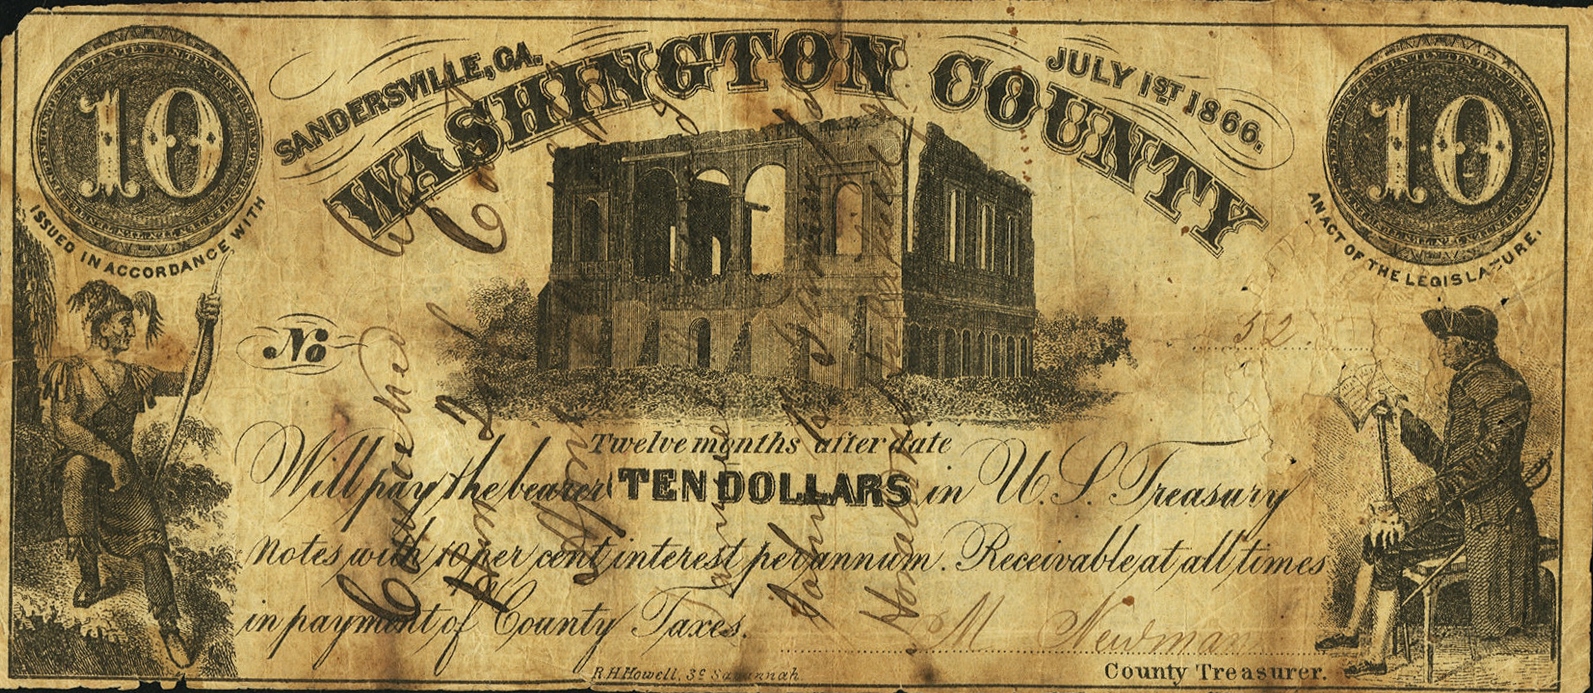 10
SANDERSVILLE, GA.
WASHINGTON COUNTY
JULY 1ST 1866.
10
ISSUED IN ACCORDANCE WITH
AN ACT OF THE LEGISLATURE.
No
32
Twelve months after date
Will pay the bearer TEN DOLLARS in U. S. Treasury
Notes with 10 per cent interest per annum. Receivable at all times
in payment of County Taxes.
M Newman
R. H. Howell, Sc Savannah.
County Treasurer.